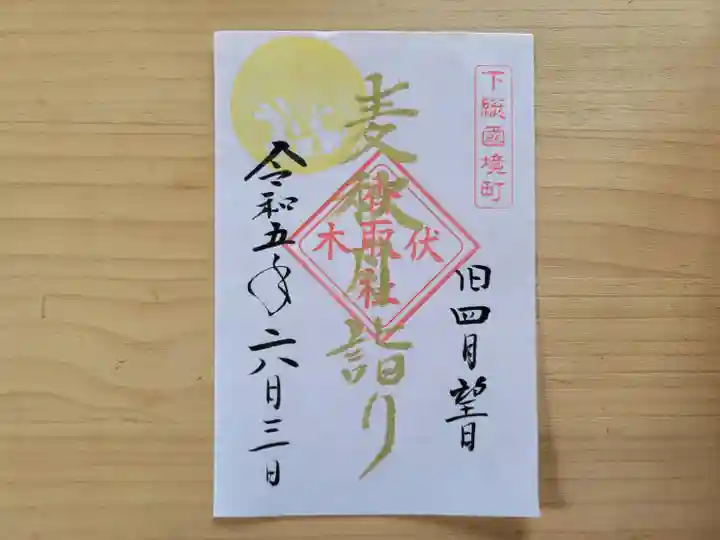 下総國境町
旧四月望日
麦秋月詣り
伏木
香取社
令和五年六月三日